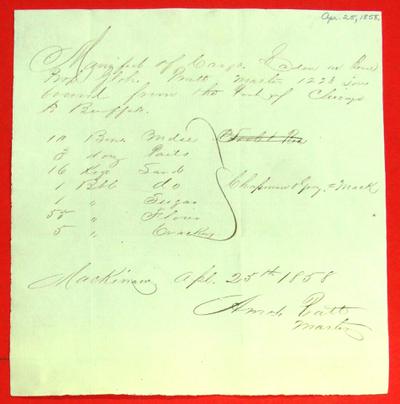 Apr. 25, 1858.
Manifest of Cargo Laden on Board
Prop Globe Pratt Master 1223 tons
bound from the Port of Chicago
to Buffalo
10 Boxes Mdse
doz Pails
16 Kegs Lard
1 Bbl do
1 " Sugar
55 " Flour
5 " Crackers
Chapman & Gray - Mack
Mackinaw Apl. 25th 1858
Amos Pratt
Master